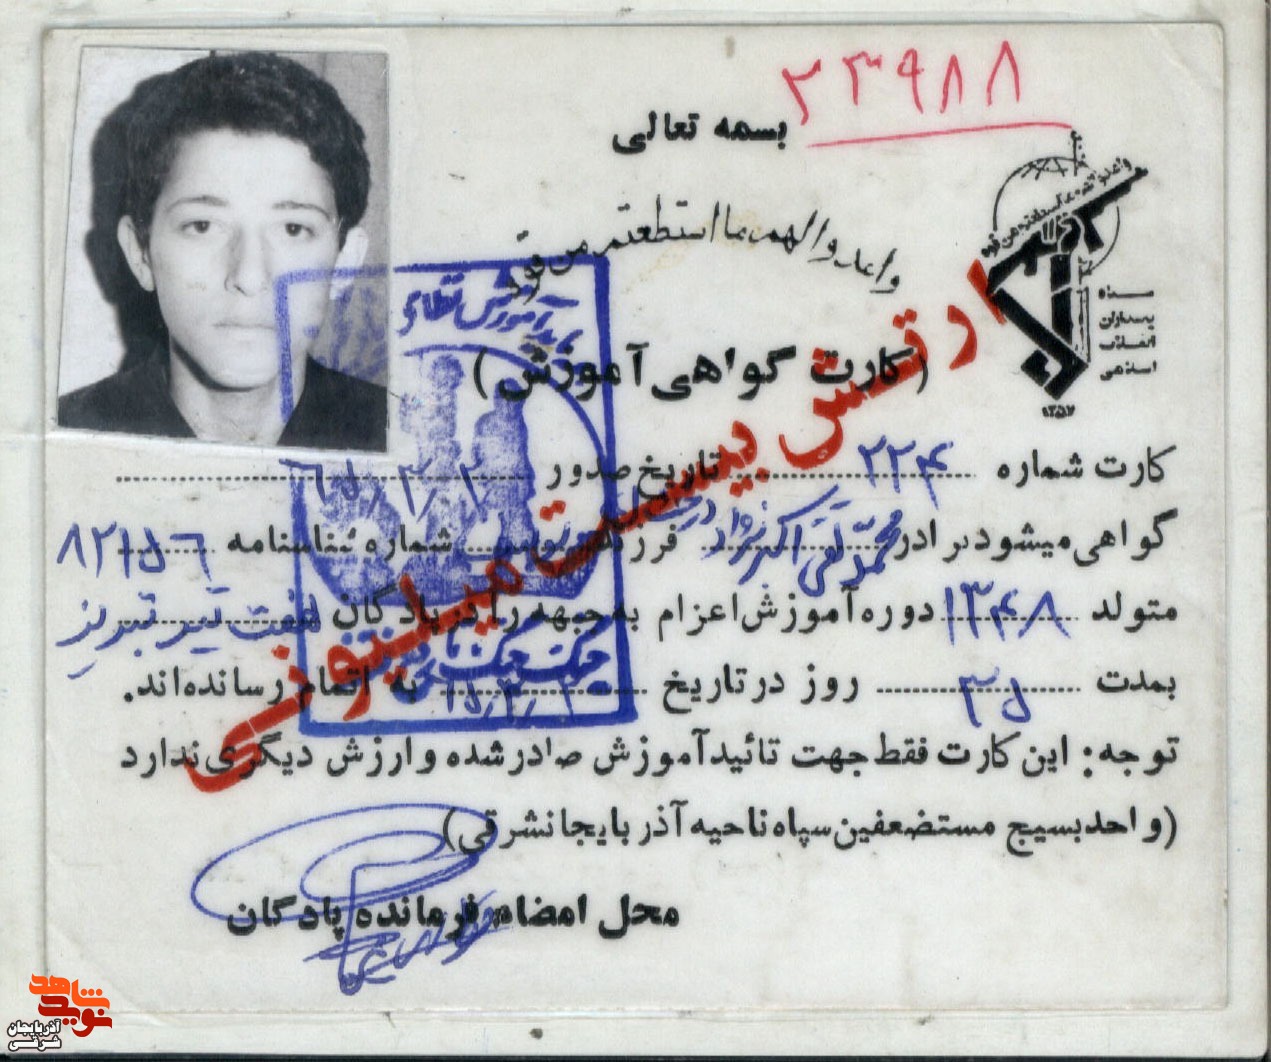 ۲۳۹۸۸
بسمه تعالی
واعدوا لهم ما استطعتم من قوة
سپاه
پاسداران
انقلاب
اسلامی
۱۳۵۷
ارتش بیست میلیونی
(کارت گواهی آموزش)
کارت شماره ۲۲۴ تاریخ صدور ۶۵/۳/۲
گواهی میشود برادر محمد تقی اکبرنژاد فرزند شماره شناسنامه ۸۲۱۵۶
متولد ۱۳۴۸ دوره آموزش اعزام به جبهه را در پادگان هفت تیر تبریز
بمدت ۳۵ روز در تاریخ به اتمام رسانده‌اند.
توجه: این کارت فقط جهت تائید آموزش صادر شده و ارزش دیگری ندارد
(واحد بسیج مستضعفین سپاه ناحیه آذربایجانشرقی)
محل امضاء فرمانده پادگان
نوید شاهد
آذربایجان
شرقی